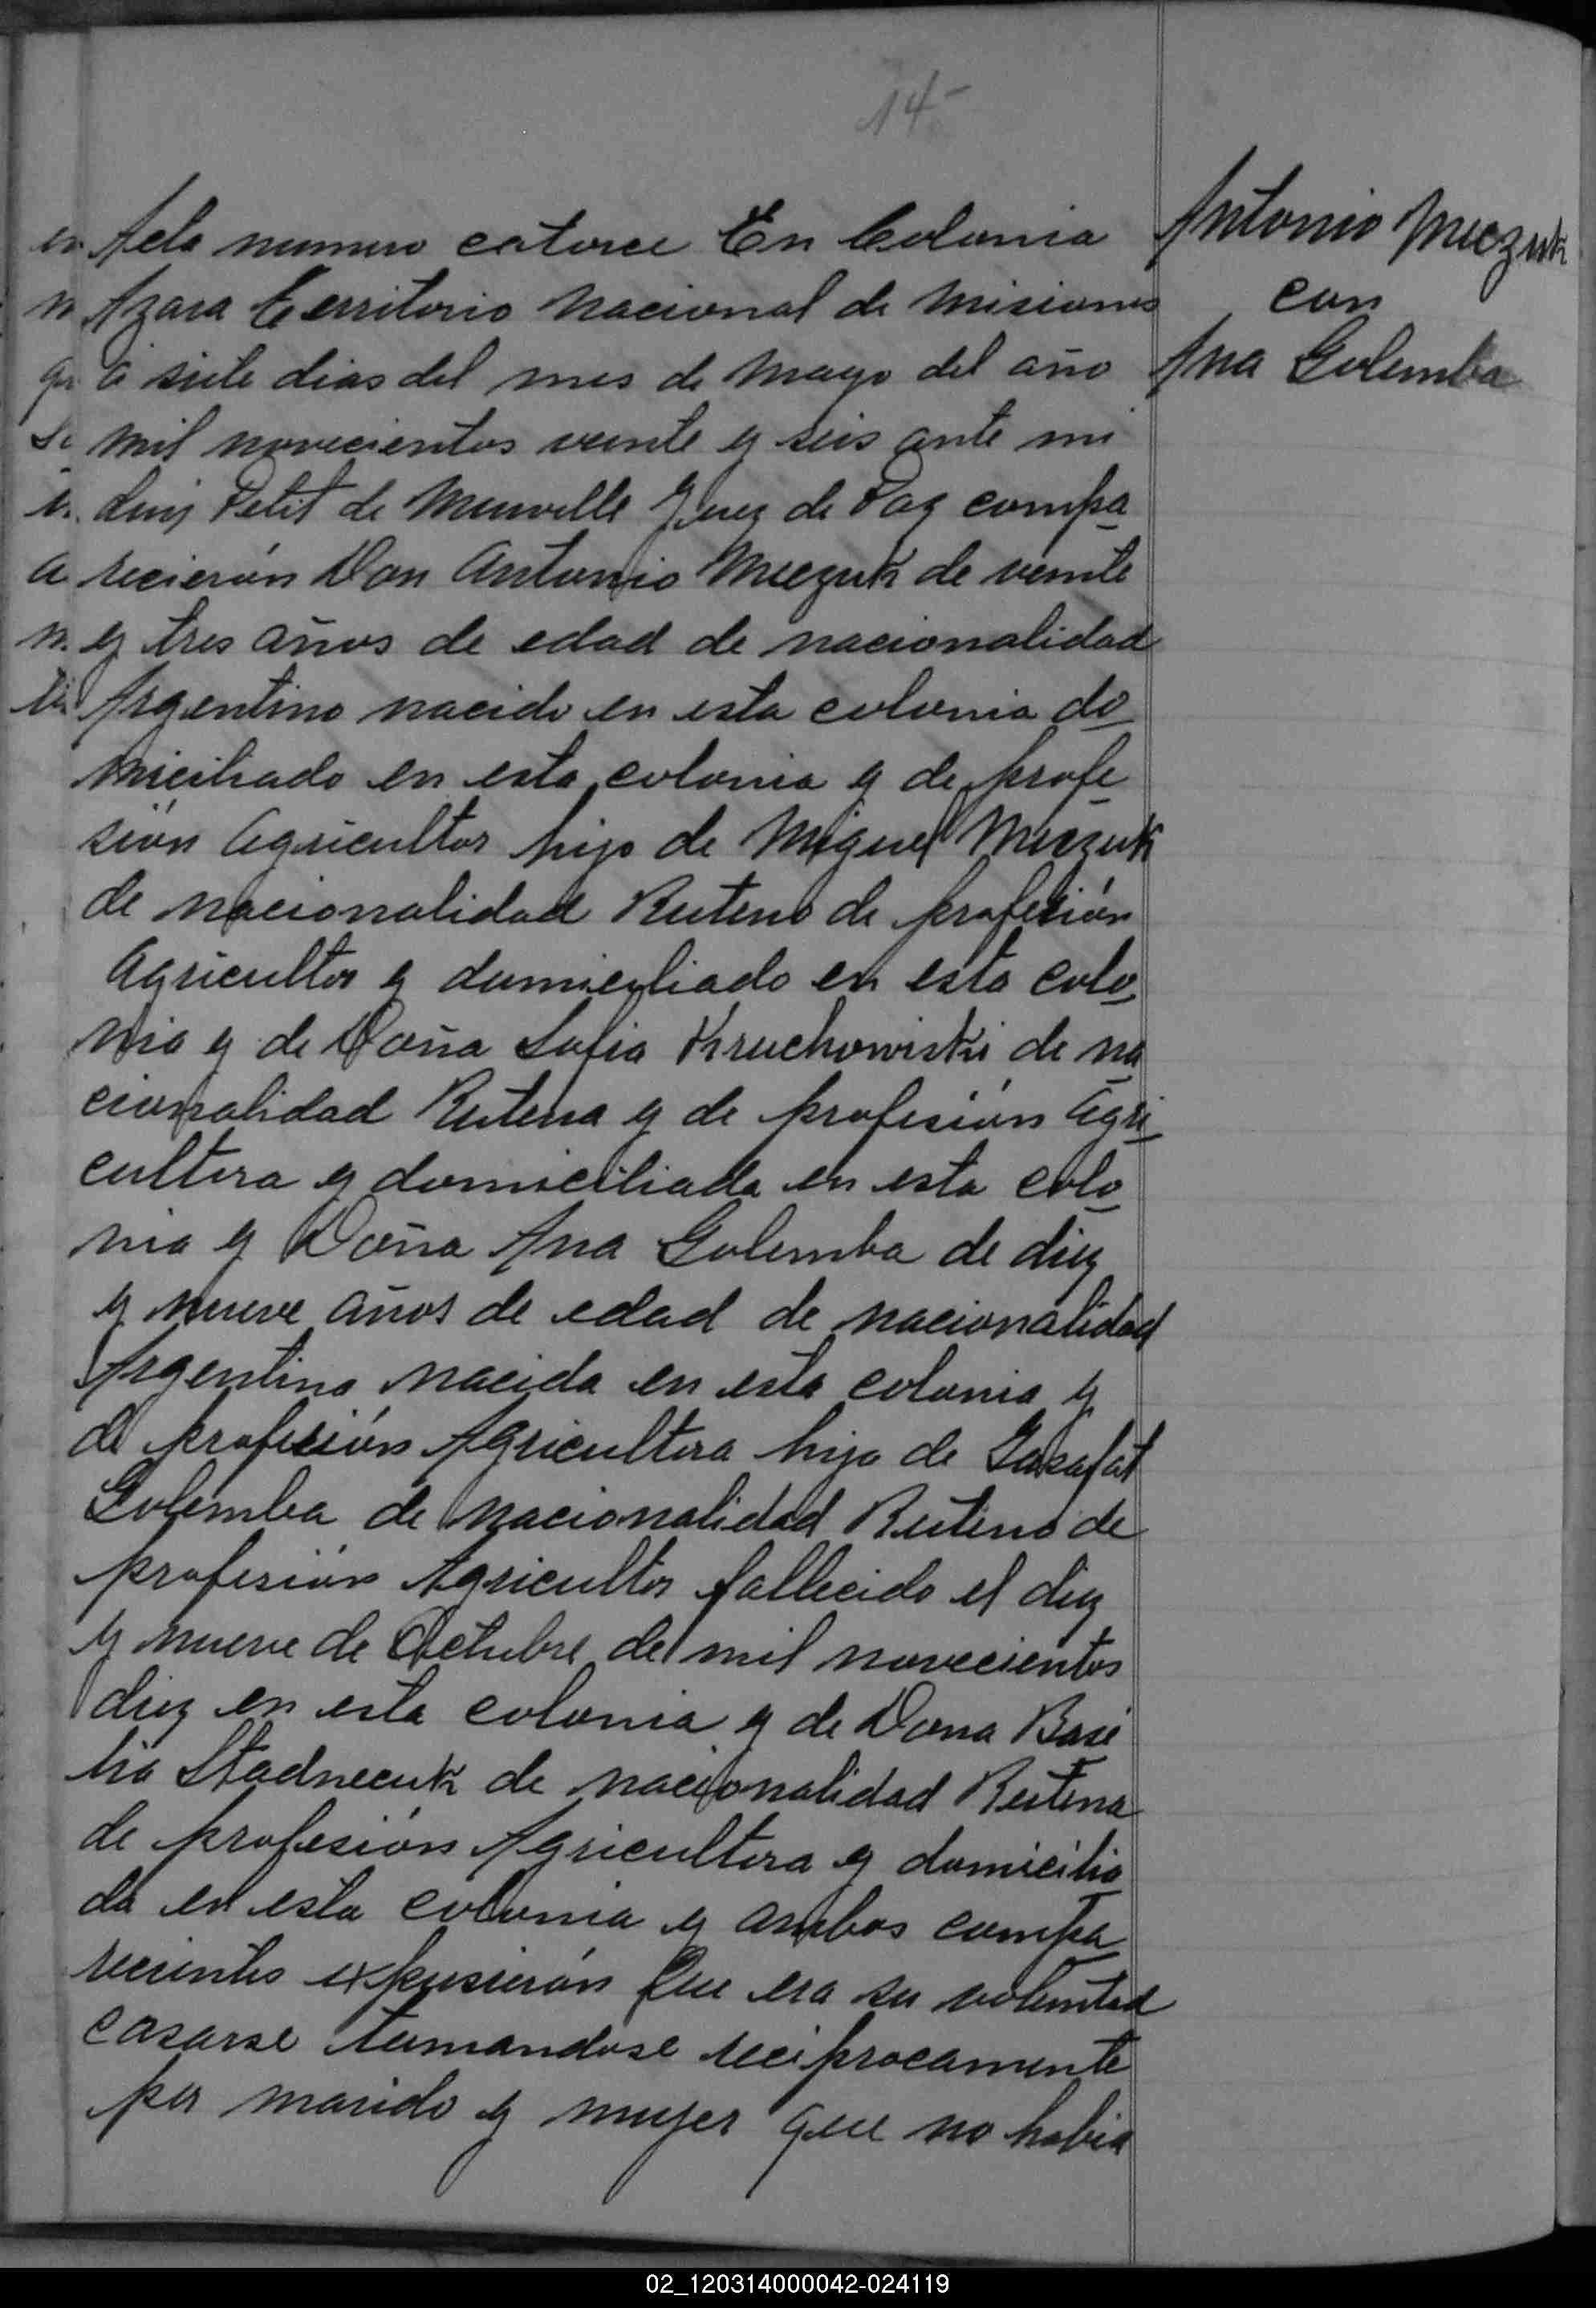 14
Acta numero catorce En Colonia
Azara Territorio Nacional de Misiones
á siete dias del mes de Mayo del año
mil novecientos veinte y seis ante mi
Luis Petit de Murville Juez de Paz compa
recierón Don Antonio Miczuk de veinte
y tres años de edad de nacionalidad
Argentino nacido en esta colonia do
miciliado en esta colonia y de profe
sión Agricultor hijo de Miguel Miczuk
de nacionalidad Ruteno de profesión
Agricultor y domiciliado en esta colo
nia y de Doña Sofia Kruchowiski de na
cionalidad Rutena y de profesión Agri
cultora y domiciliada en esta colo
nia y Doña Ana Golemba de diez
y nueve años de edad de nacionalidad
Argentina nacida en esta colonia y
de profesión Agricultora hija de Jasafat
Golemba de nacionalidad Ruteno de
profesión Agricultor fallecido el diez
y nueve de Octubre de mil novecientos
diez en esta colonia y de Dona Basi
lia Stadnecuk de nacionalidad Rutena
de profesión Agricultora y domicilia
da en esta colonia y ambos compa
recientes expusierón Que era su voluntad
casarse tomandose reciprocamente
por marido y mujer que no habia
Antonio Miczuk
con
Ana Golemba
02_120314000042-024119